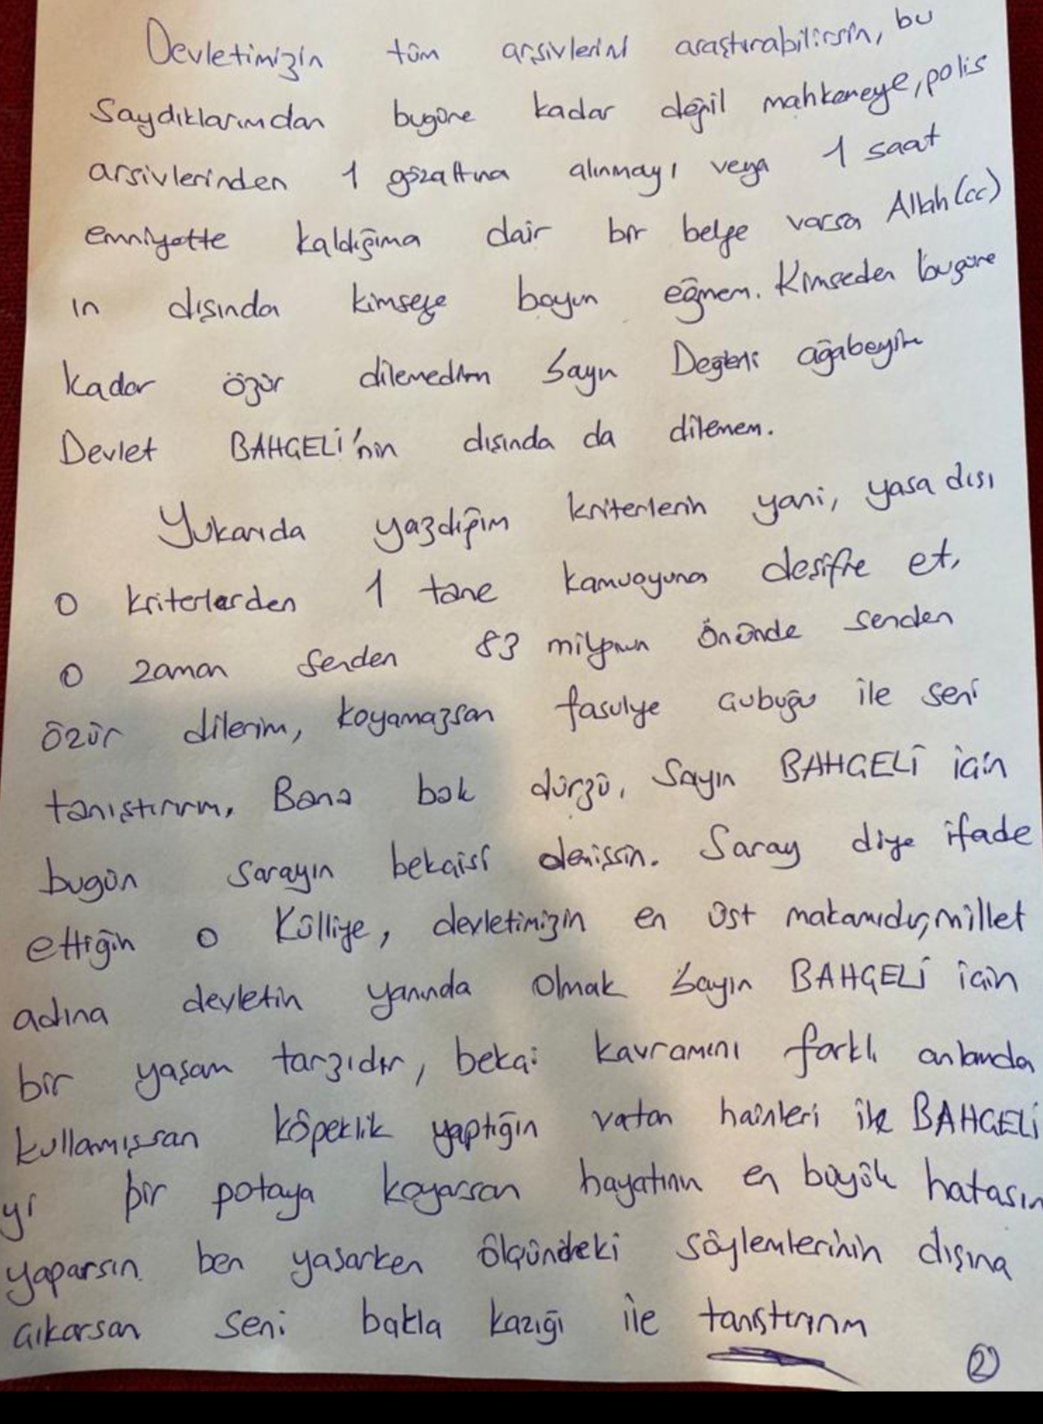 Devletimizin tüm arşivlerini araştırabilirsin, bu
Saydıklarımdan bugüne kadar değil mahkemeye, polis
arşivlerinden 1 gözaltına alınmayı veya 1 saat
emniyette kaldığıma dair bir belge varsa Allah (cc)
ın dışında kimseye boyun eğmem. Kimseden bugüne
kadar özür dilemedim Sayın Değerli ağabeyim
Devlet BAHÇELİ'nin dışında da dilemem.
Yukarıda yazdığım kriterlerin yani, yasa dışı
o kriterlerden 1 tane kamuoyuna deşifre et,
o zaman senden 83 milyonun önünde senden
özür dilerim, koyamazsan fasulye çubuğu ile seni
tanıştırırım, Bana bak dürzü, Sayın BAHÇELİ için
bugün sarayın bekçisi demişsin. Saray diye ifade
ettiğin o Külliye, devletimizin en üst makamıdır, millet
adına devletin yanında olmak Sayın BAHÇELİ için
bir yaşam tarzıdır, bekçi kavramını farklı anlamda
kullanmışsan köpeklik yaptığın vatan hainleri ile BAHÇELİ
yi bir potaya koyarsan hayatının en büyük hatasın
yaparsın. ben yaşarken ölçündeki söylemlerinin dışına
çıkarsan seni bakla kazığı ile tanıştırırım
2